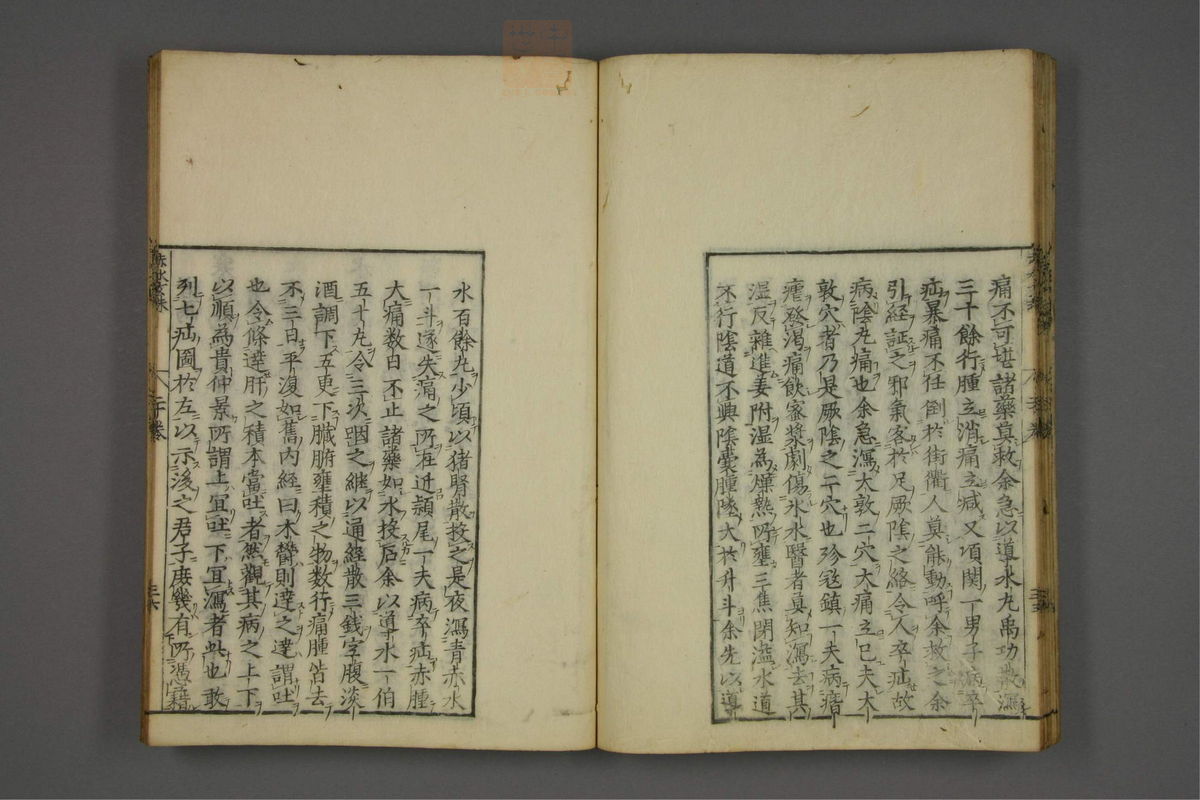 痛不可甚諸藥莫救余急以導水丸禹功散瀉
三十餘行腫立消痛立減又項関一男子病卒
疝暴痛不任倒於街衢人莫能動呼余救之余
引經証之邪氣客於足厥陰之絡令人卒疝故
病陰丸痛也余急瀉大敦二穴大痛立已夫大
敦穴者乃是厥陰之二穴也殄寇鎮一夫病痎
瘧發渴痛飲蜜漿劇傷氷水醫者莫知瀉去其
湿反雜進姜附湿為燥熱所壅三焦閉溢水道
不行陰道不興陰囊腫墜大於升斗余先以導
水百餘丸少頃以猪腎散投之是夜瀉青赤水
一斗遂失痛之所在近頴尾一夫病卒疝赤腫
大痛数日不止諸藥如水投石余以導水一伯
五十丸令三次咽之継以通經散三銭字腹淡
酒調下五更下臓腑壅積之物数行痛腫皆去
不三日平復如舊内經曰木欝則達之達謂吐
也令條達肝之積本當吐者然觀其病之上下
以順為貴仲景所謂上冝吐下冝瀉者此也敢
列七疝圖於左以示後之君子庻幾有所憑藉
二十卷
三六